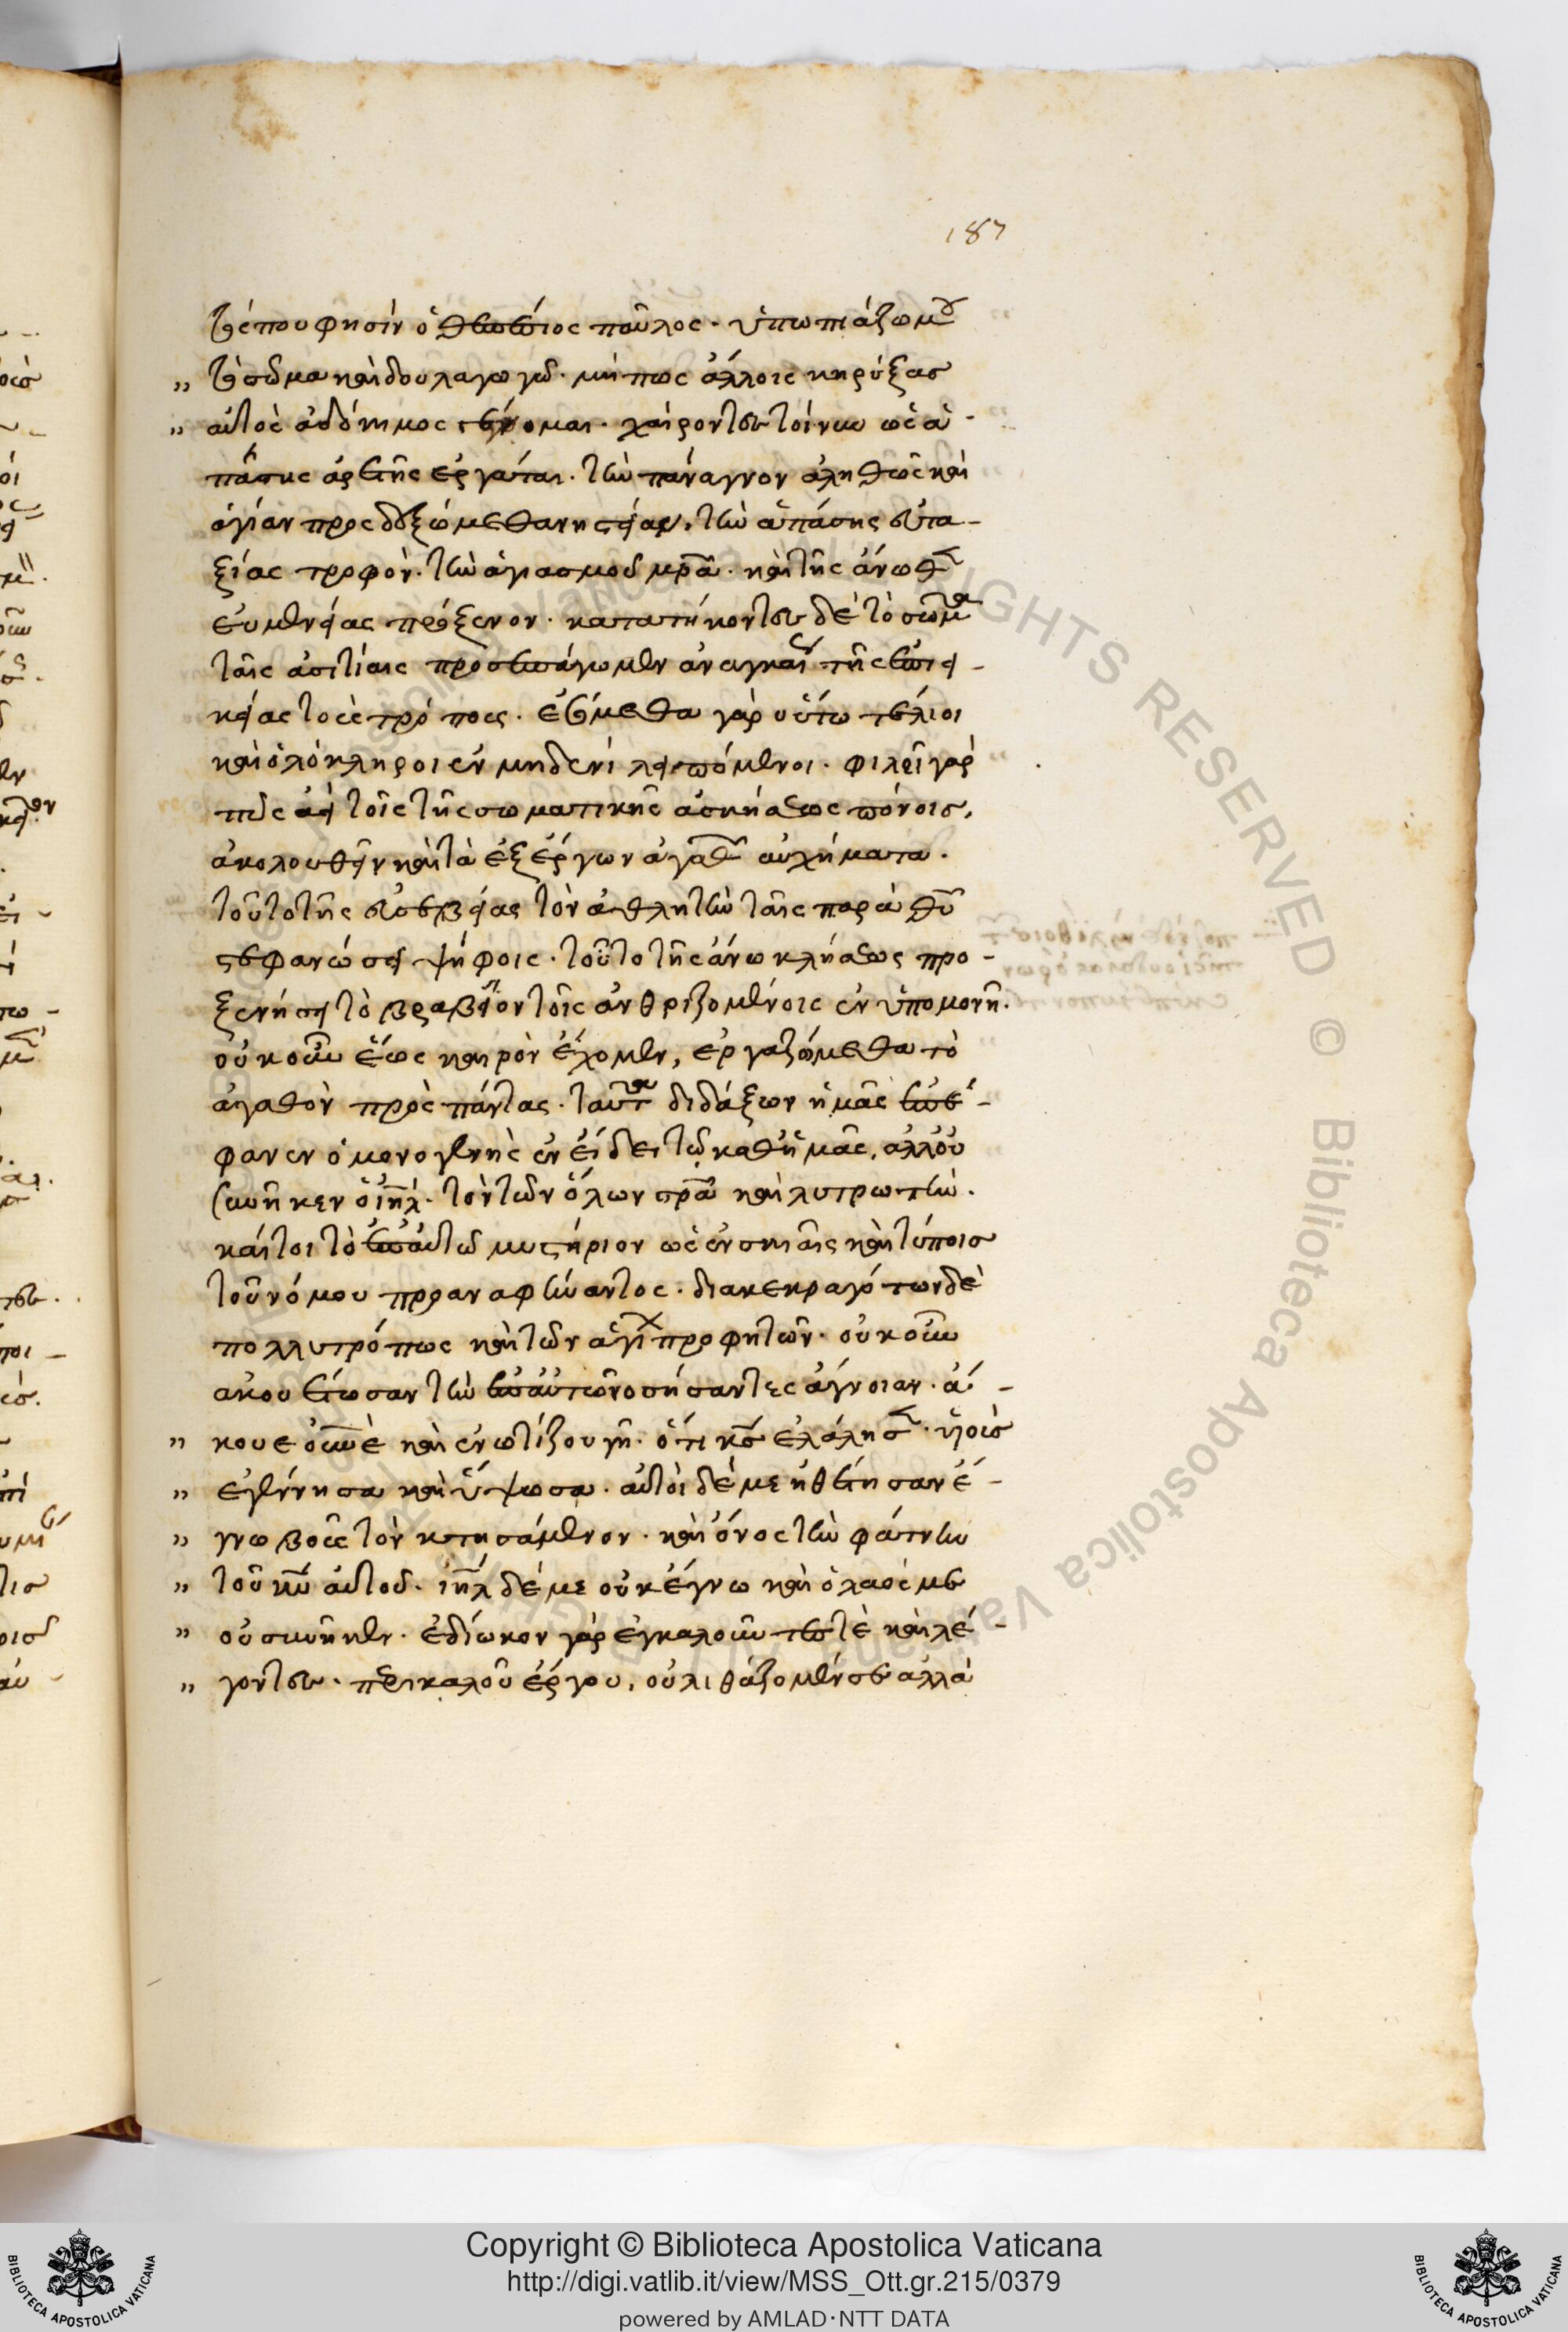 187
τέ που φησὶν ὁ θεσπέσιος παῦλος· ὑπωπιάζω μου
„ τὸ σῶμα καὶ δουλαγωγῶ· μήπως ἄλλοις κηρύξας
„ αὐτὸς ἀδόκιμος γένομαι. χαίροντες τοίνυν ὡς ἁ-
πάσης ἀρετῆς ἐργάται. τὴν πάναγνον ἀληθῶς καὶ
ἁγίαν προσδεξώμεθα νηστείαν, τὴν ἁπάσης εὐτα-
ξίας τροφὸν. τὴν ἁγιασμοῦ μητέρα. καὶ τῆς ἄνωθεν
εὐμενείας πρόξενον. κατατήκοντες δὲ τὸ σῶμα
ταῖς ἀσιτίαις προσεπάγωμεν ἀναγκαίως τῆς ἐπιεί-
κείας τοὺς τρόπους. ἐσόμεθα γὰρ οὕτω τέλιοι
καὶ ὁλόκληροι ἐν μηδενὶ λειπόμενοι. φιλεῖ γάρ
πως ἀεὶ τοῖς τῆς σωματικῆς ἀσκήσεως πόνοις,
ἀκολουθεῖν καὶ τὰ ἐξ ἔργων ἀγαθῶν αὐχήματα.
τοῦτο τῆς εὐσεβείας τὸν ἀθλητὴν ταῖς παρὰ θεοῦ
στεφανώσει ψήφοις. τοῦτο τῆς ἄνω κλήσεως προ-
ξενήσει τὸ βραβεῖον τοῖς ἀνθριζομένοις ἐν ὑπομονῇ.
οὐκοῦν ἕως καιρὸν ἔχομεν, ἐργαζώμεθα τὸ
ἀγαθὸν πρὸς πάντας. ταῦτα διδάξων ἡμᾶς ἐπέ-
φανεν ὁ μονογενὴς ἐν εἴδει τῷ καθ' ἡμᾶς, ἀλλ' οὐ
συνῆκεν ὁ ἰηλ. τὸν τῶν ὅλων σρα καὶ λυτρωτὴν.
καίτοι τὸ ἐπ' αὐτῷ μυστήριον ὡς ἐν σκιαῖς καὶ τύποις
τοῦ νόμου προαναφωνήσαντος. διακεκραγότων δὲ
πολλυτρόπως καὶ τῶν ἁγίων προφητῶν. οὐκοῦν
ἀκουέτωσαν τὴν ἐπ' αὐτῷ νοσήσαντες ἄγνοιαν. ἄ-
„ κουε οὐρανὲ καὶ ἐνωτίζου γῆ. ὅτι κς ἐλάλησεν· υἱοὺς
„ ἐγέννησα καὶ ὕψωσα. αὐτοὶ δέ με ἠθέτησαν ἔ-
„ γνω βοῦς τὸν κτησάμενον. καὶ ὄνος τὴν φάτνην
„ τοῦ κυ αὐτοῦ. ιηλ δέ με οὐκ ἔγνω καὶ ὁ λαός με
„ οὐ συνῆκεν. ἐδίωκον γὰρ ἐγκαλοῦντές τε καὶ λέ-
„ γοντες. περὶ καλοῦ ἔργου, οὐ λιθάζομέν σε ἀλλὰ
Copyright © Biblioteca Apostolica Vaticana
http://digi.vatlib.it/view/MSS_Ott.gr.215/0379
powered by AMLAD·NTT DATA